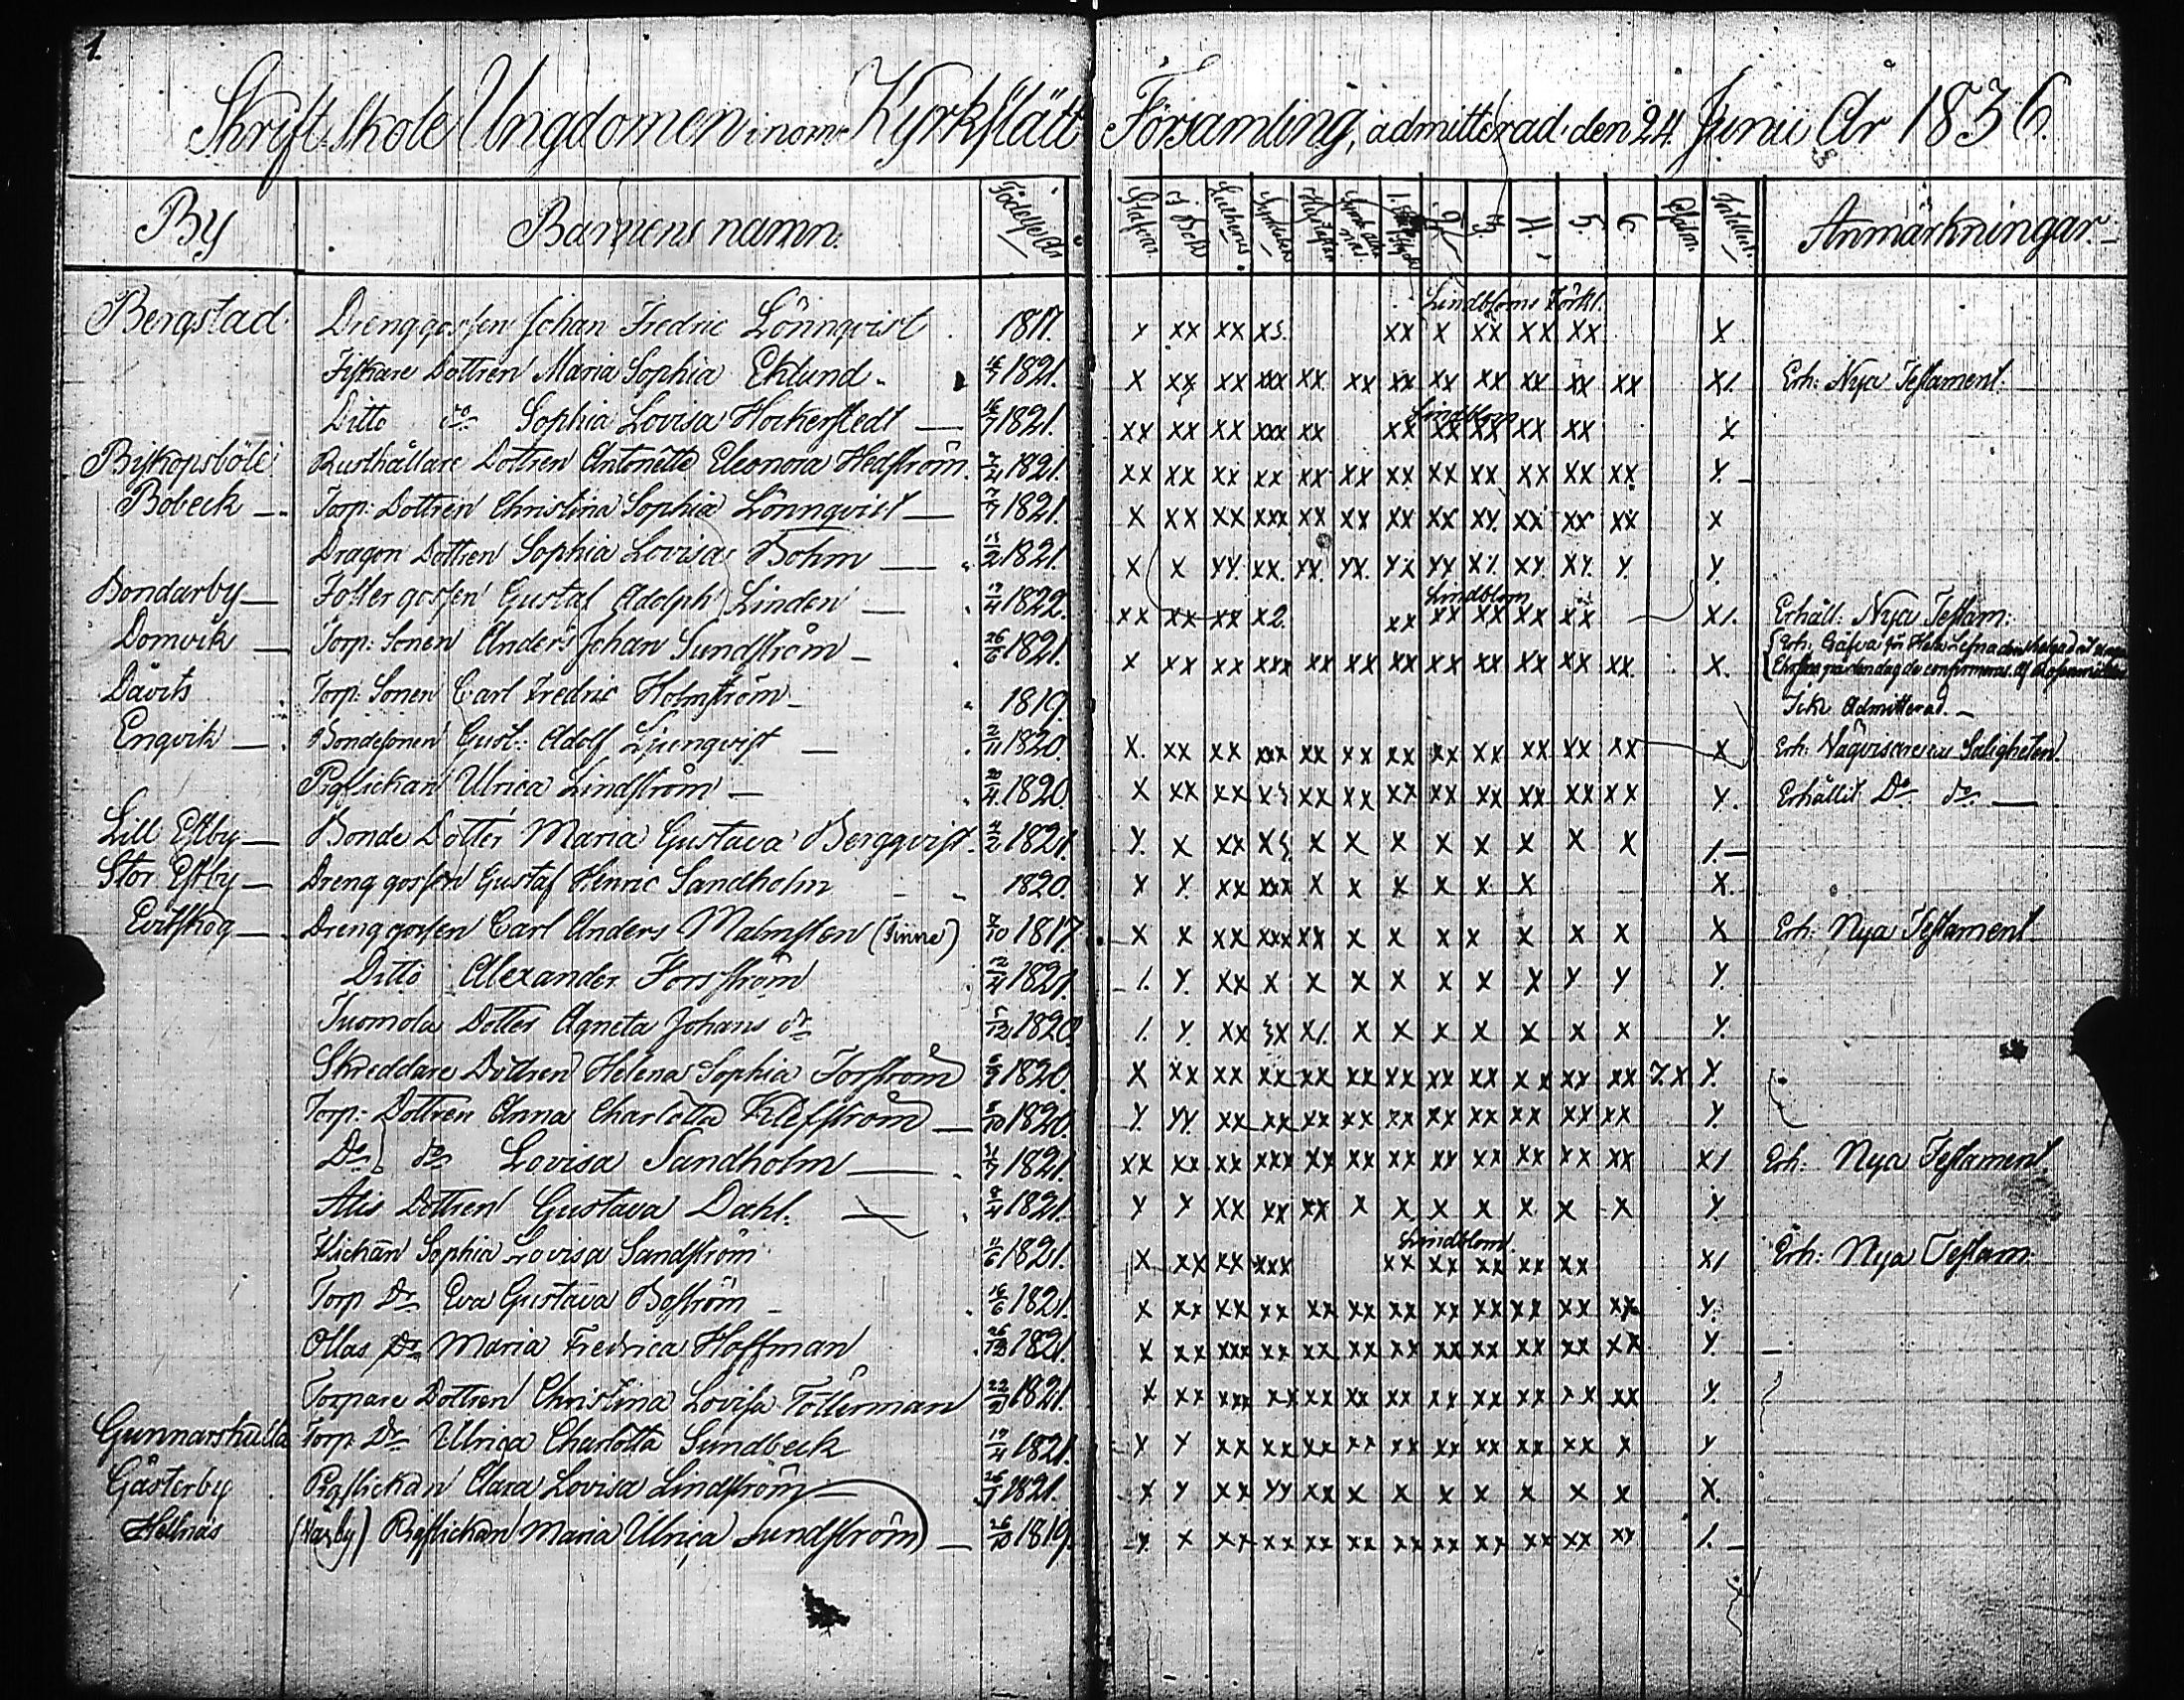 1.
Skrift-skole Ungdomen inom Kyrkslätt Församling, admitterad den 24 Junii År 1836.
By Barnens namn. Födelse År Stafvins. i Bok Lutheri Hustaflan 2 3. 4. 5. 6 Psalm. Anmärkningar.
Lindbloms Förkl.
Bergstad Drenggossen Johan Fredric Lönnqvist 1817. x xx xx x3. xx x xx xx xx x
Fiskare Dottren Maria Sophia Eklund 1821. x xx xx xxx xx xx xx xx xx xx xx xx x1. Erh: Nya Testament.
Lindblom
Ditto do Sophia Lovisa Hockerstedt 16/7 1821. xx xx xx xxx xx xx xx xx xx xx x
Biskopsböle Rusthållare Dottren Antonette Eleonora Hedström 1821. xx xx xx xx xx xx xx xx xx xx xx xx x.
Bobeck Torp: Dottren Christina Sophia Lönnqvist 7/7 1821. x xx xx xxx xx xx xx xx xx xx xx xx x
Dragon Dottren Sophia Lovisa Bohm 13/2 1821. x x xx. xx. xx. xx. xx xx xx xx. xx. x. x.
Lindblom
Bondarby Foster gossen Gustaf Adolph Linden 19/4 1822. xx xx xx x2. xx xx xx xx xx x1. Erhåll: Nya Testam:
Domvik Torp: Sonen Anders Johan Sundström 26/6 1821. x xx xx xxx xx xx xx xx xx xx xx xx x. Erh: Gåfva
Dävits Torp: Sonen Carl Fredric Holmström 1819. Icke Admitterad.
Engvik Bondesonen Gust: Adolf Ljungqvist 2/11 1820. x. xx xx xxx xx xx xx xx xx xx xx xx x Erh: Vägvisare Saligheten.
Pigflickan Ulrica Lindström 20/4 1820. x xx xx x3 xx xx xx xx xx xx xx xx x. Erhållit Do do
Lill Estby Bonde Dotter Maria Gustava Bergqvist. 4/2 1821. x. x xx x3. x x x x x x x x 1.
Stor Estby Dreng gossen Gustaf Henric Sandholm 1820. x x. xx xxx x x x x x x x.
Evitskog Dreng gossen Carl Anders Malmsten (Finne) 7/10 1817 x x xx xxx xx x x x x x x x x Erh: Nya Testament
Ditto Alexander Forsström 12/4 1821. 1. x. xx x x x x x x x x x x.
Tuomola Dotter Agneta Johans dr 5/12 1820. 1. x. xx 3x x1. x x x x x x x x.
Skreddare Dottren Helena Sophia Forström 1820. x xx xx xx xx xx xx xx xx xx xx xx 7.x x.
Torp: Dottren Anna Charlotta Klefström 8/10 1820. x. xx. xx xx xx xx xx xx xx xx xx xx x.
Do do Lovisa Sandholm 1821. xx xx xx xxx xx xx xx xx xx xx xx xx x1 Erh: Nya Testament.
Atis Dottren Gustava Dahl. 1821. x x xx xx xx x x x x x x x x.
Lindblom.
Flickan Sophia Lovisa Sandström 11/6 1821. x xx xx xxx xx xx xx xx xx x1 Erh: Nya Testam:
Torp Dr Eva Gustava Boström 16/6 1821. x xx xx xx xx xx xx xx xx xx xx xx x.
Ollas Dr Maria Fredrica Hoffman 26/12 1821. x xx xxx xx xx xx xx xx xx xx xx xx x.
Torpare Dottren Christina Lovisa Föllerman 1821. x xx xxx xx xx xx xx xx xx xx xx xx x.
Gunnarskulla Torp: Dr Ulrica Charlotta Sundbeck 19/4 1821. x x xx xx xx xx xx xx xx xx xx x x
Gästerby Pigflickan Clara Lovisa Lindström 1821. x x xx xx xx x x x x x x x x.
Hellnäs Pigflickan Maria Ulrica Sundström 26/10 1819. x x xx xx xx xx xx xx xx xx xx xx 1.